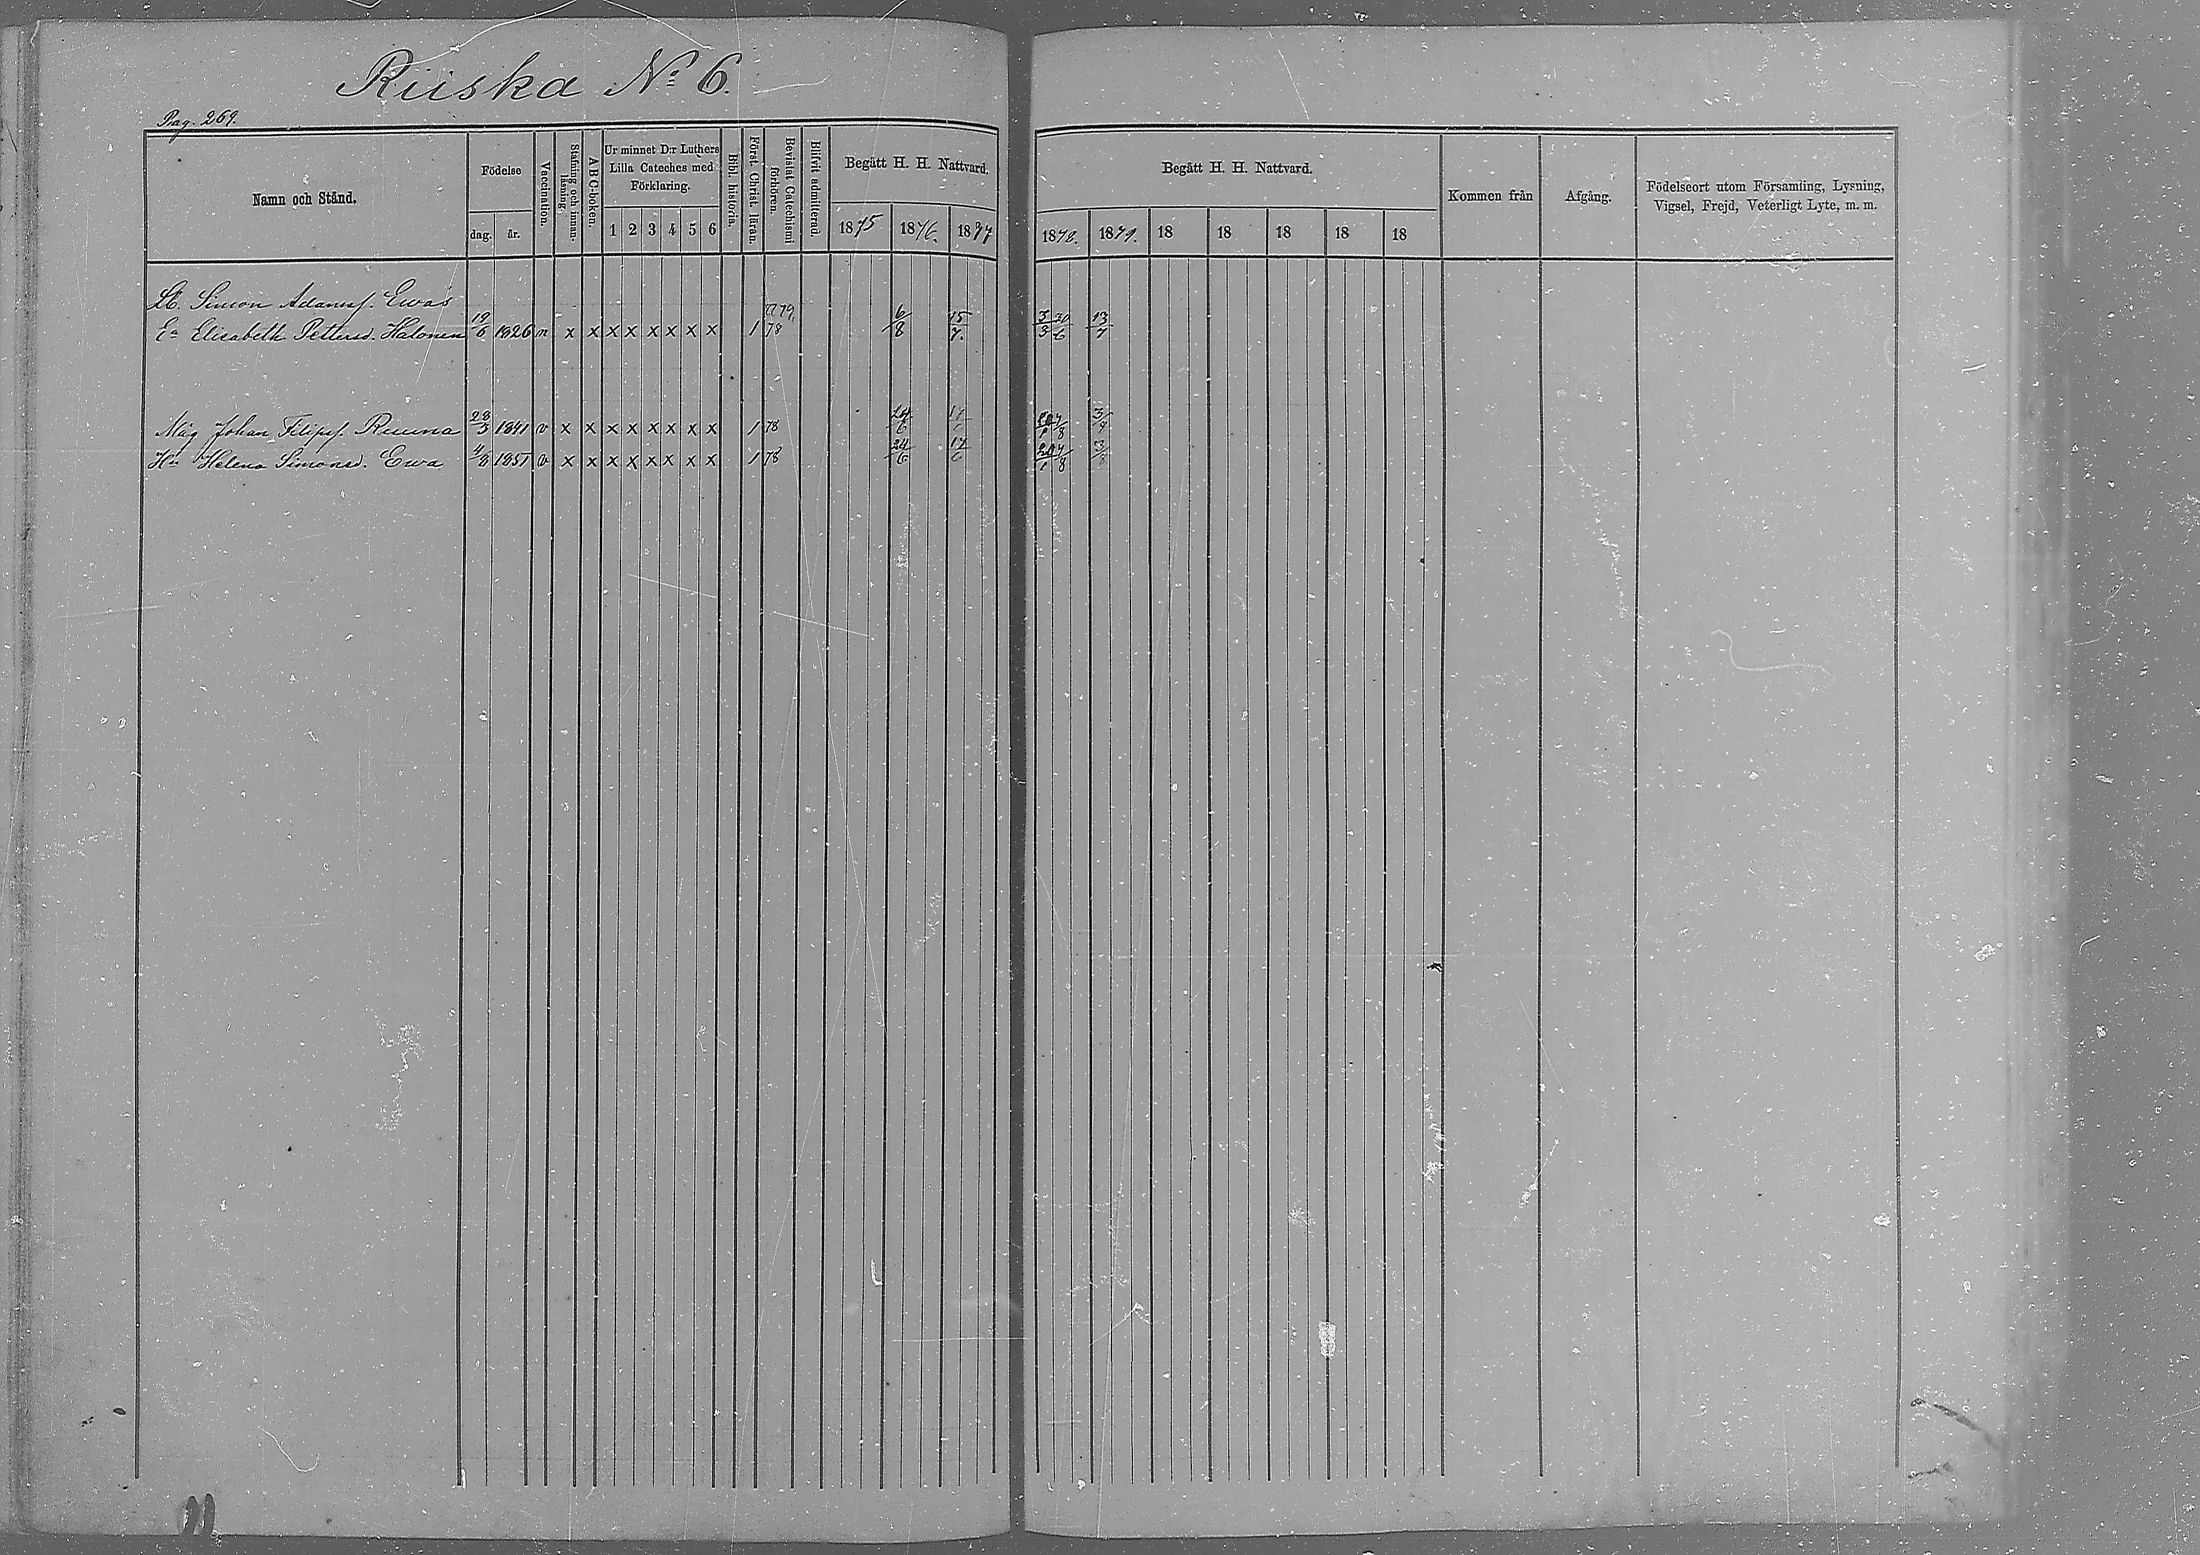 Riiska No 6.
Pag. 269.
Namn och Stånd.
Födelse
dag. år.
Vaccination.
Stafning och innan-läsning.
ABC-boken.
Ur minnet D:r Luthers
Lilla Cateches med
Förklaring.
1 2 3 4 5 6
Bibl. historia.
Först. Christ. läran.
Bevistat Catechismi förhören.
Blifvit admitterad.
Begått H. H. Nattvard.
1875 1876. 1877
Begått H. H. Nattvard.
1878. 1879. 18 18 18 18 18
Kommen från
Afgång.
Födelseort utom Församling, Lysning,
Vigsel, Frejd, Veterligt Lyte, m. m.
Simon Adamsf. Ewas
79
Ea Elisabeth Pettersd. Halonen 19/6 1826 n x x x x x x x x 1 78 6/8 15/7. 3/3 30/6 13/7
Måg Johan Filipsf. Ruuna 28/3 1841 v x x x x x x x x 1 78 24/6
Hu Helena Simonsd. Ewa 4/8 1851 v x x x x x x x x 1 78 24/6 17/6 3/8